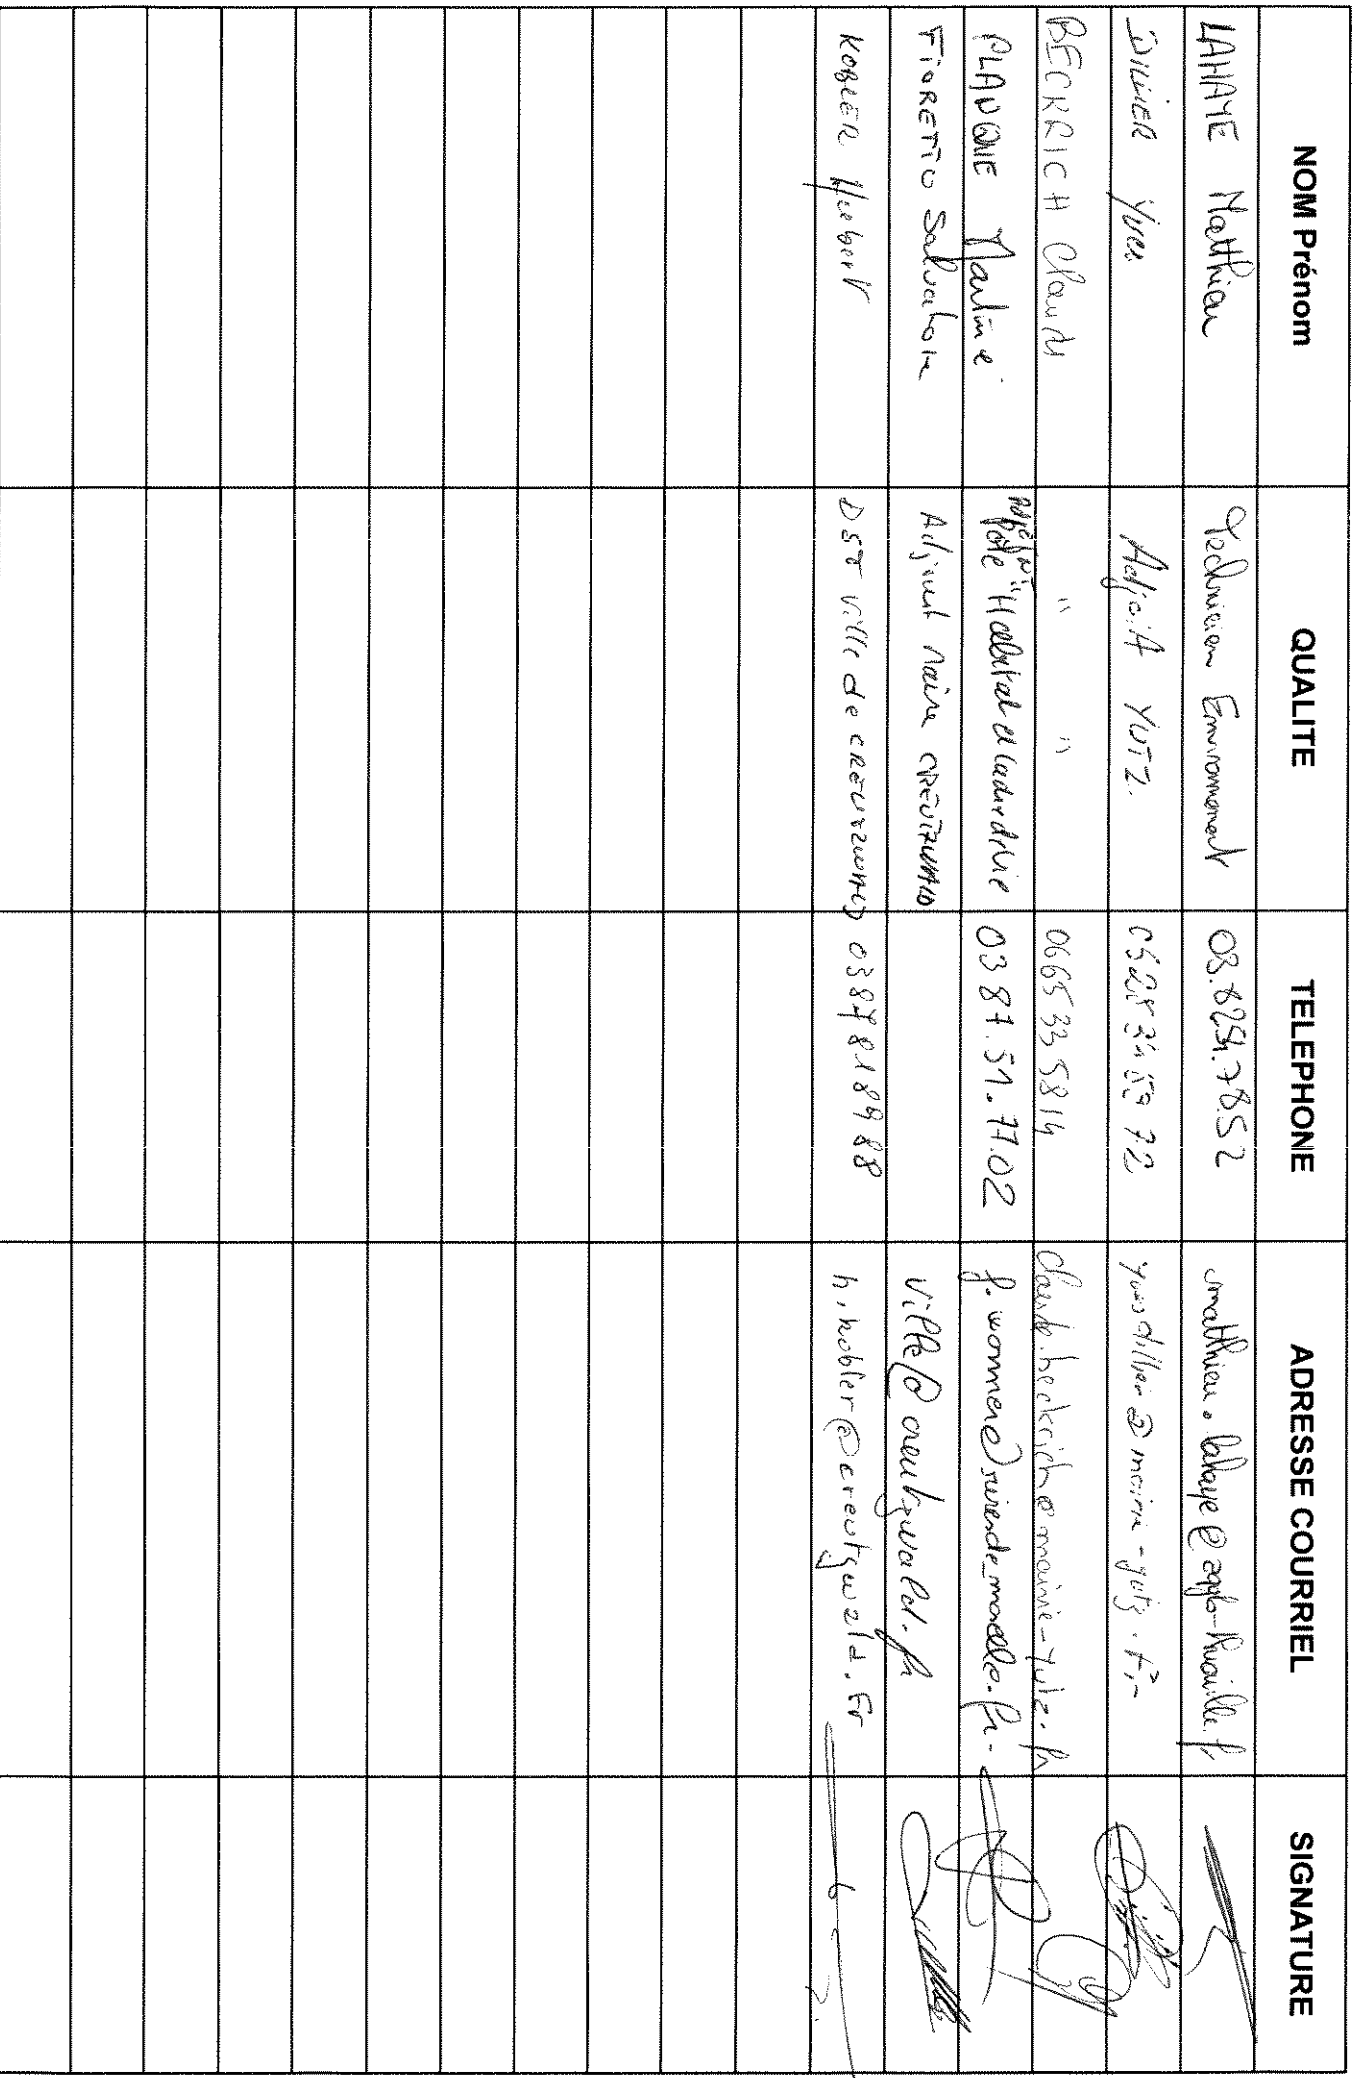 NOM Prénom QUALITE TELEPHONE ADRESSE COURRIEL SIGNATURE
LAHAYE Matthieu Technicien Environnement 03.8254.7852 matthieu.lahaye@agglo-thionville.fr
DILLIER Yves Adjoint YUTZ. yvesdillier@mairie-yutz.fr
BECKRICH Claude " " 0665335814 claude.beckrich@mairie-yutz.fr
PLANQUE Martine Adjoint Pôle "Habitat et cadre de vie 03 87.51.77.02
FIORETTO Salvatore Adjoint Maire CREUTZWALD ville@creutzwald.fr
KOBLER Hubert DST ville de CREUTZWALD 0387818988 h.kobler@creutzwald.fr